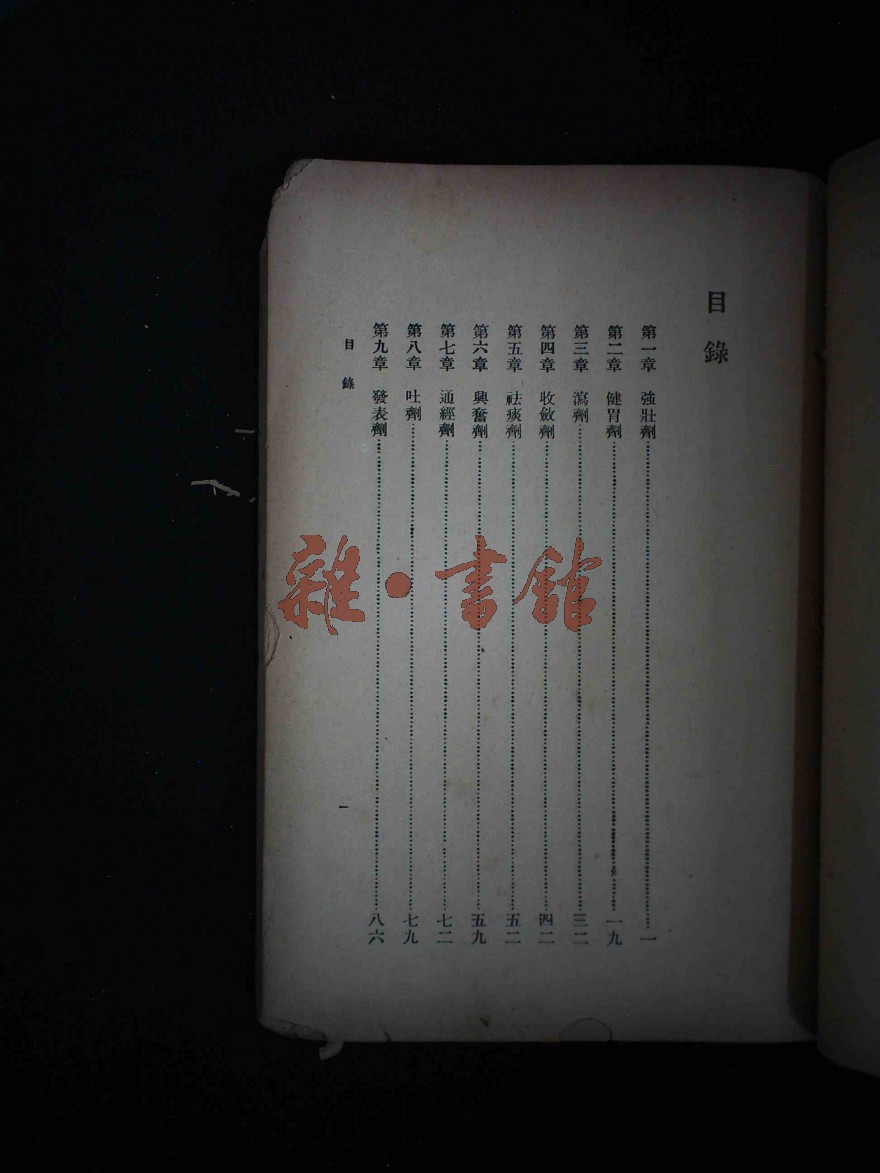 目錄
第一章 強壯劑…………一
第二章 健胃劑…………一九
第三章 瀉劑…………三二
第四章 收斂劑…………四二
第五章 祛痰劑…………五二
第六章 興奮劑…………五九
第七章 通經劑…………七二
第八章 吐劑…………七九
第九章 發表劑…………八六
目錄
一
雜·書館